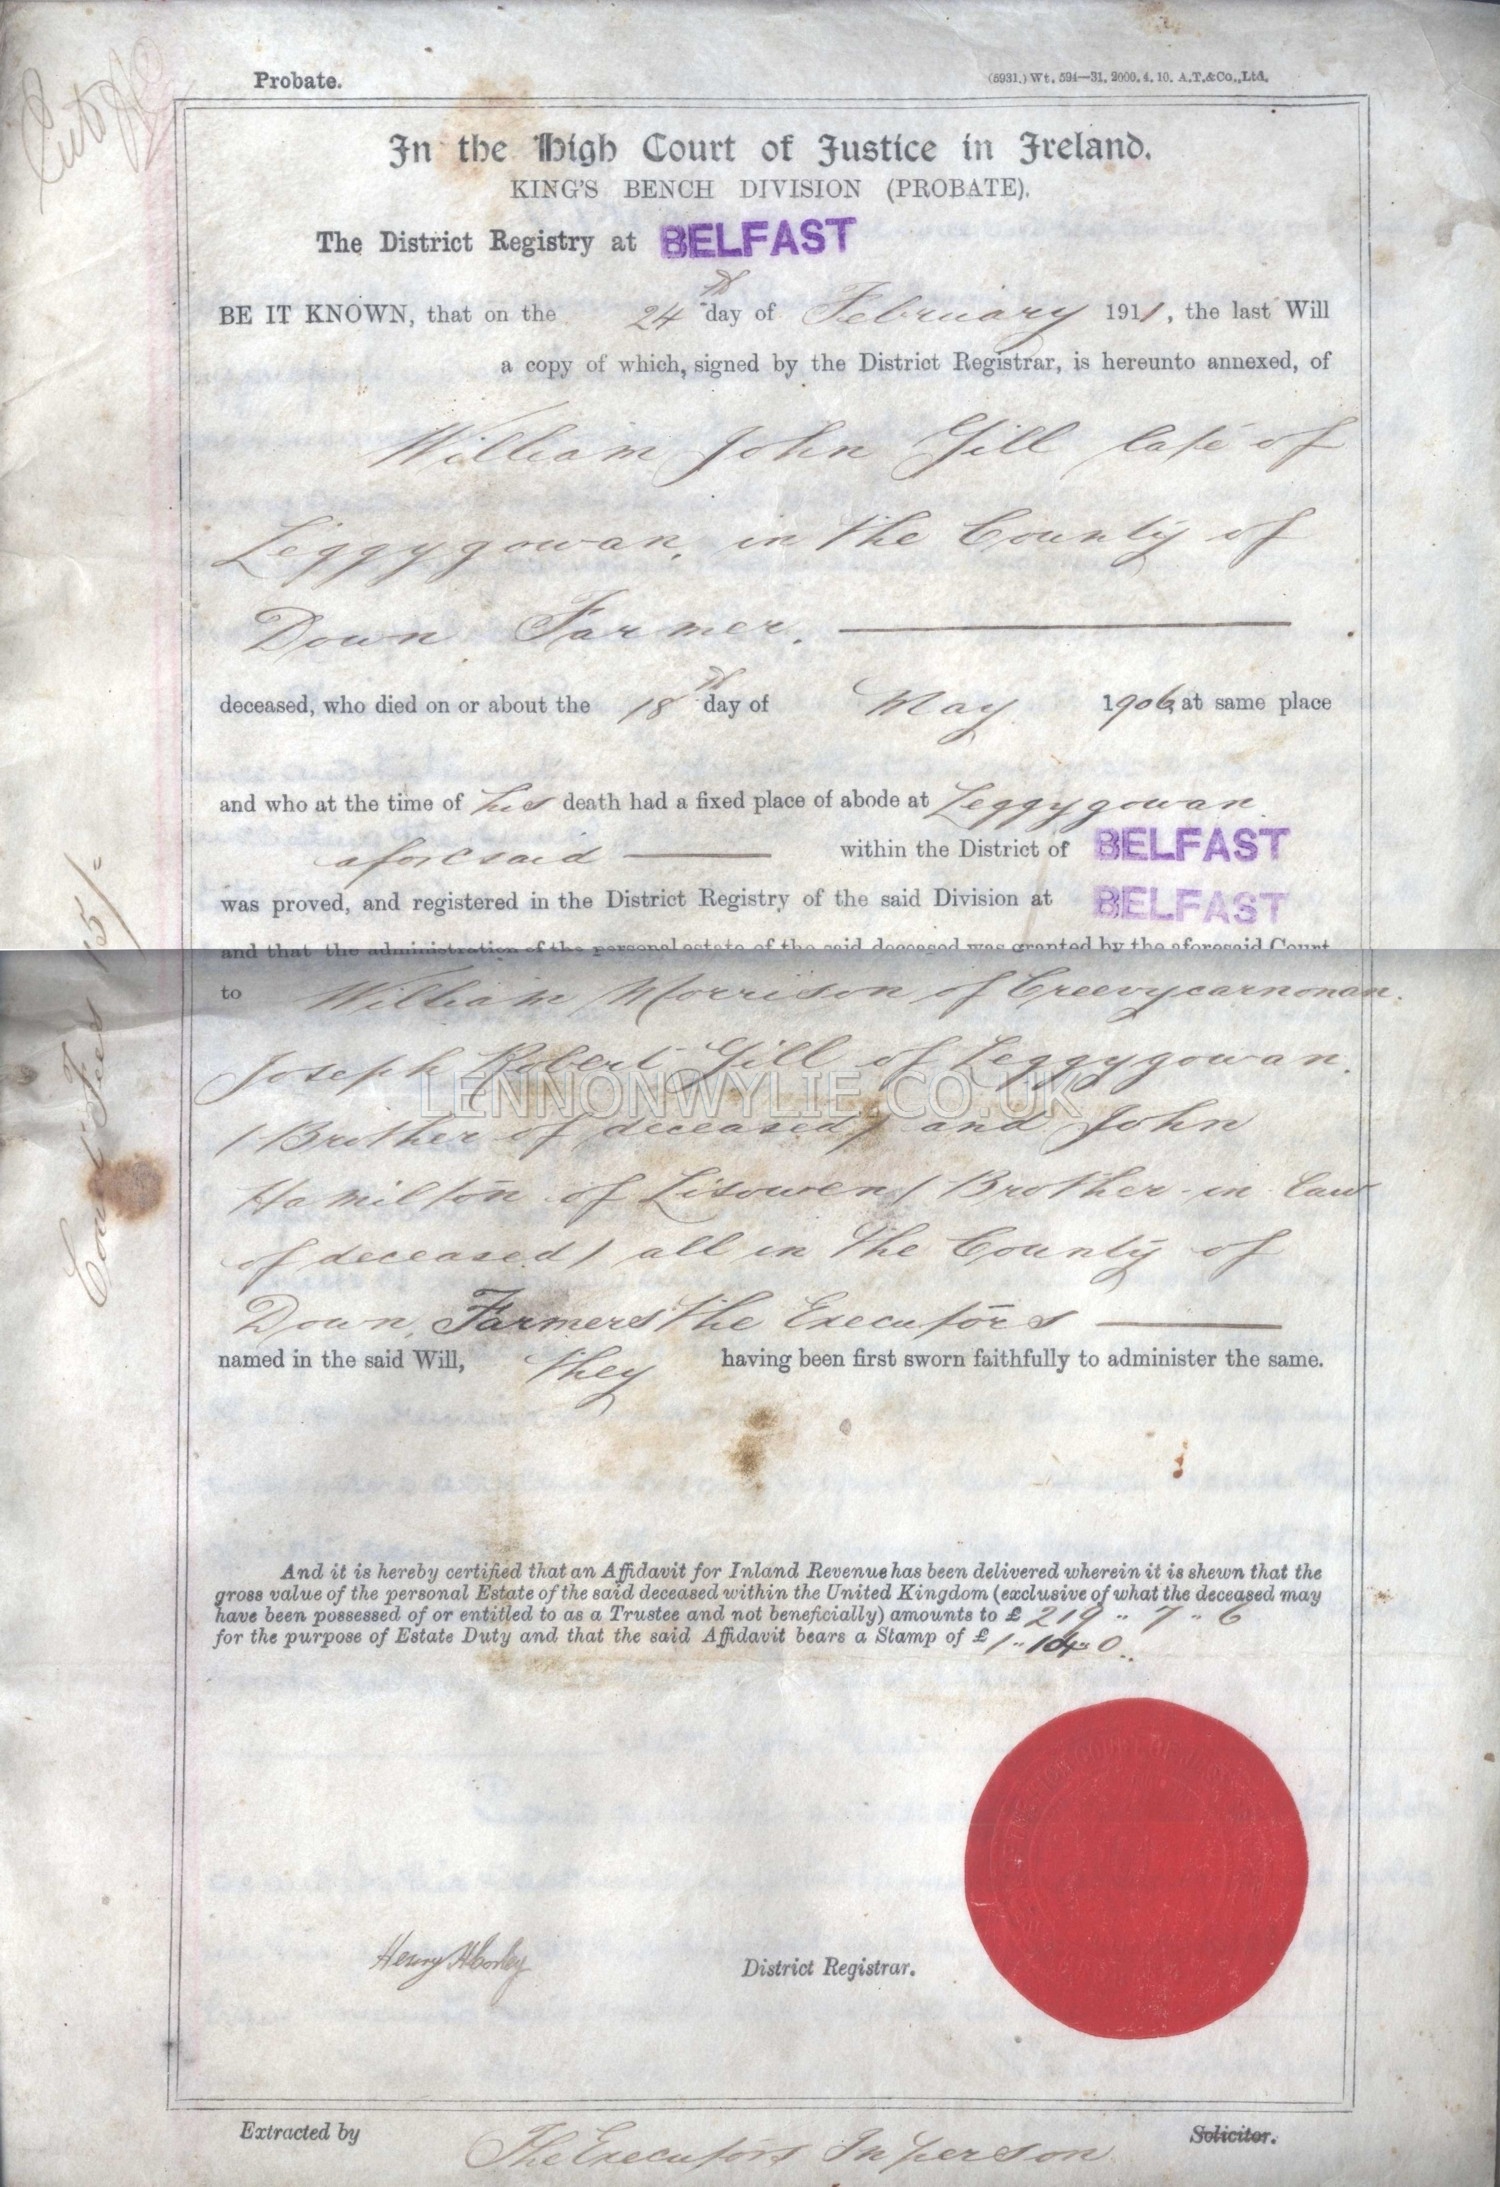 Probate.
(5931.) Wt. 594—31. 2000. 4. 10. A.T.&Co.,Ltd.
In the High Court of Justice in Ireland.
KING'S BENCH DIVISION (PROBATE).
The District Registry at BELFAST
BE IT KNOWN, that on the 24th day of February 1911, the last Will
a copy of which, signed by the District Registrar, is hereunto annexed, of
William John Gill late of
Leggygowan, in the County of
Down Farmer.
deceased, who died on or about the 18th day of May 1906 at same place
and who at the time of his death had a fixed place of abode at Leggygowan
aforesaid within the District of BELFAST
was proved, and registered in the District Registry of the said Division at BELFAST
and that the administration of the personal estate of the said deceased was granted by the aforesaid Court
to William Morrison of Creevycarnonan.
Joseph Robert Gill of Leggygowan.
LENNONWYLIE.CO.UK
(Brother of deceased) and John
Hamilton of Lisowen (Brother-in-law
of deceased) all in the County of
Down, Farmers the Executors
named in the said Will, they having been first sworn faithfully to administer the same.
And it is hereby certified that an Affidavit for Inland Revenue has been delivered wherein it is shewn that the
gross value of the personal Estate of the said deceased within the United Kingdom (exclusive of what the deceased may
have been possessed of or entitled to as a Trustee and not beneficially) amounts to £ 219 " 7 " 6
for the purpose of Estate Duty and that the said Affidavit bears a Stamp of £ 1 " 10 " 0
Henry
District Registrar.
Extracted by The Executors In person Solicitor.
Court Fees 15/=